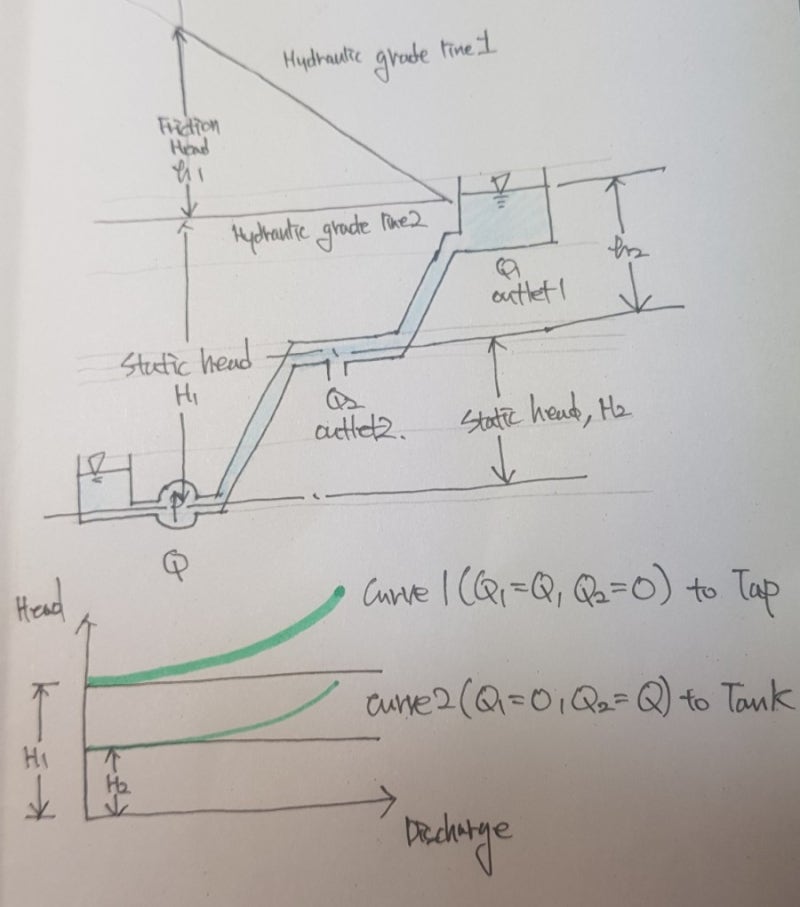 Hydraulic grade line 1
Friction
Head
h1
Hydraulic grade line2
Q1
outlet1
h2
Static head
H1
Q2
outlet2.
Static head, H2
P
Q
Head
Curve 1 (Q1=Q, Q2=0) to Tap
curve2 (Q1=0, Q2=Q) to Tank
H1
H2
Discharge